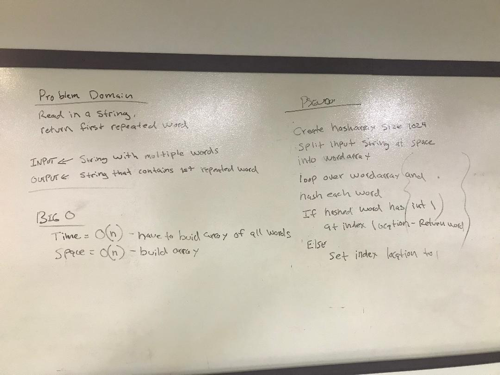 Problem Domain
Read in a String.
return first repeated word
INPUT ← String with multiple words
OUTPUT ← String that contains 1st repeated word
BIG O
Time = O(n) - have to build array of all words
Space = O(n) - build array
Create hasharray size 1024
Split input string at space
into wordarray
loop over wordarray and
hash each word
If hashed word has (int 1)
at index location - Return word
Else
Set index location to 1